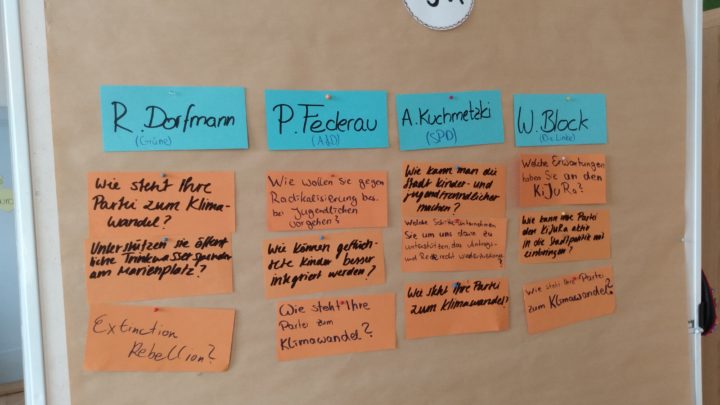 R. Dorfmann
(Grüne)
Wie steht Ihre
Partei zum Klima-
wandel?
Unterstützen sie öffent
liche Trinkwasserspender
am Marienplatz?
Extinction
Rebellion?
P. Federau
(AfD)
Wie wollen Sie gegen
Radikalisierung bes.
bei Jugendlichen
vorgehen?
Wie können geflüch-
tete Kinder besser
integriert werden?
Wie steht Ihre
Partei zum
Klimawandel?
A. Kuchmetzki
(SPD)
Wie kann man die
Stadt kinder- und
jugendfreundlicher
machen?
Welche Schritte unternehmen
Sie um uns dazu zu
unterstützen, das Antrags-
und Rederecht
Wie steht Ihre Partei
zum Klimawandel?
W. Block
(Die Linke)
Welche Erwartungen
haben Sie an den
KiJuRa?
Wie kann Ihre Partei
den KiJuRa aktiv
in die Stadtpolitik mit
einbringen?
Wie steht Ihre Partei
zum Klimawandel?